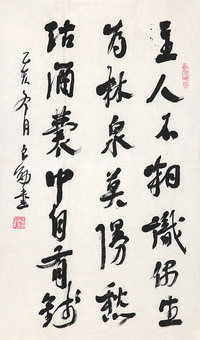 主人不相識偶坐
為林泉莫漫愁
沽酒囊中自有錢
乙亥冬月